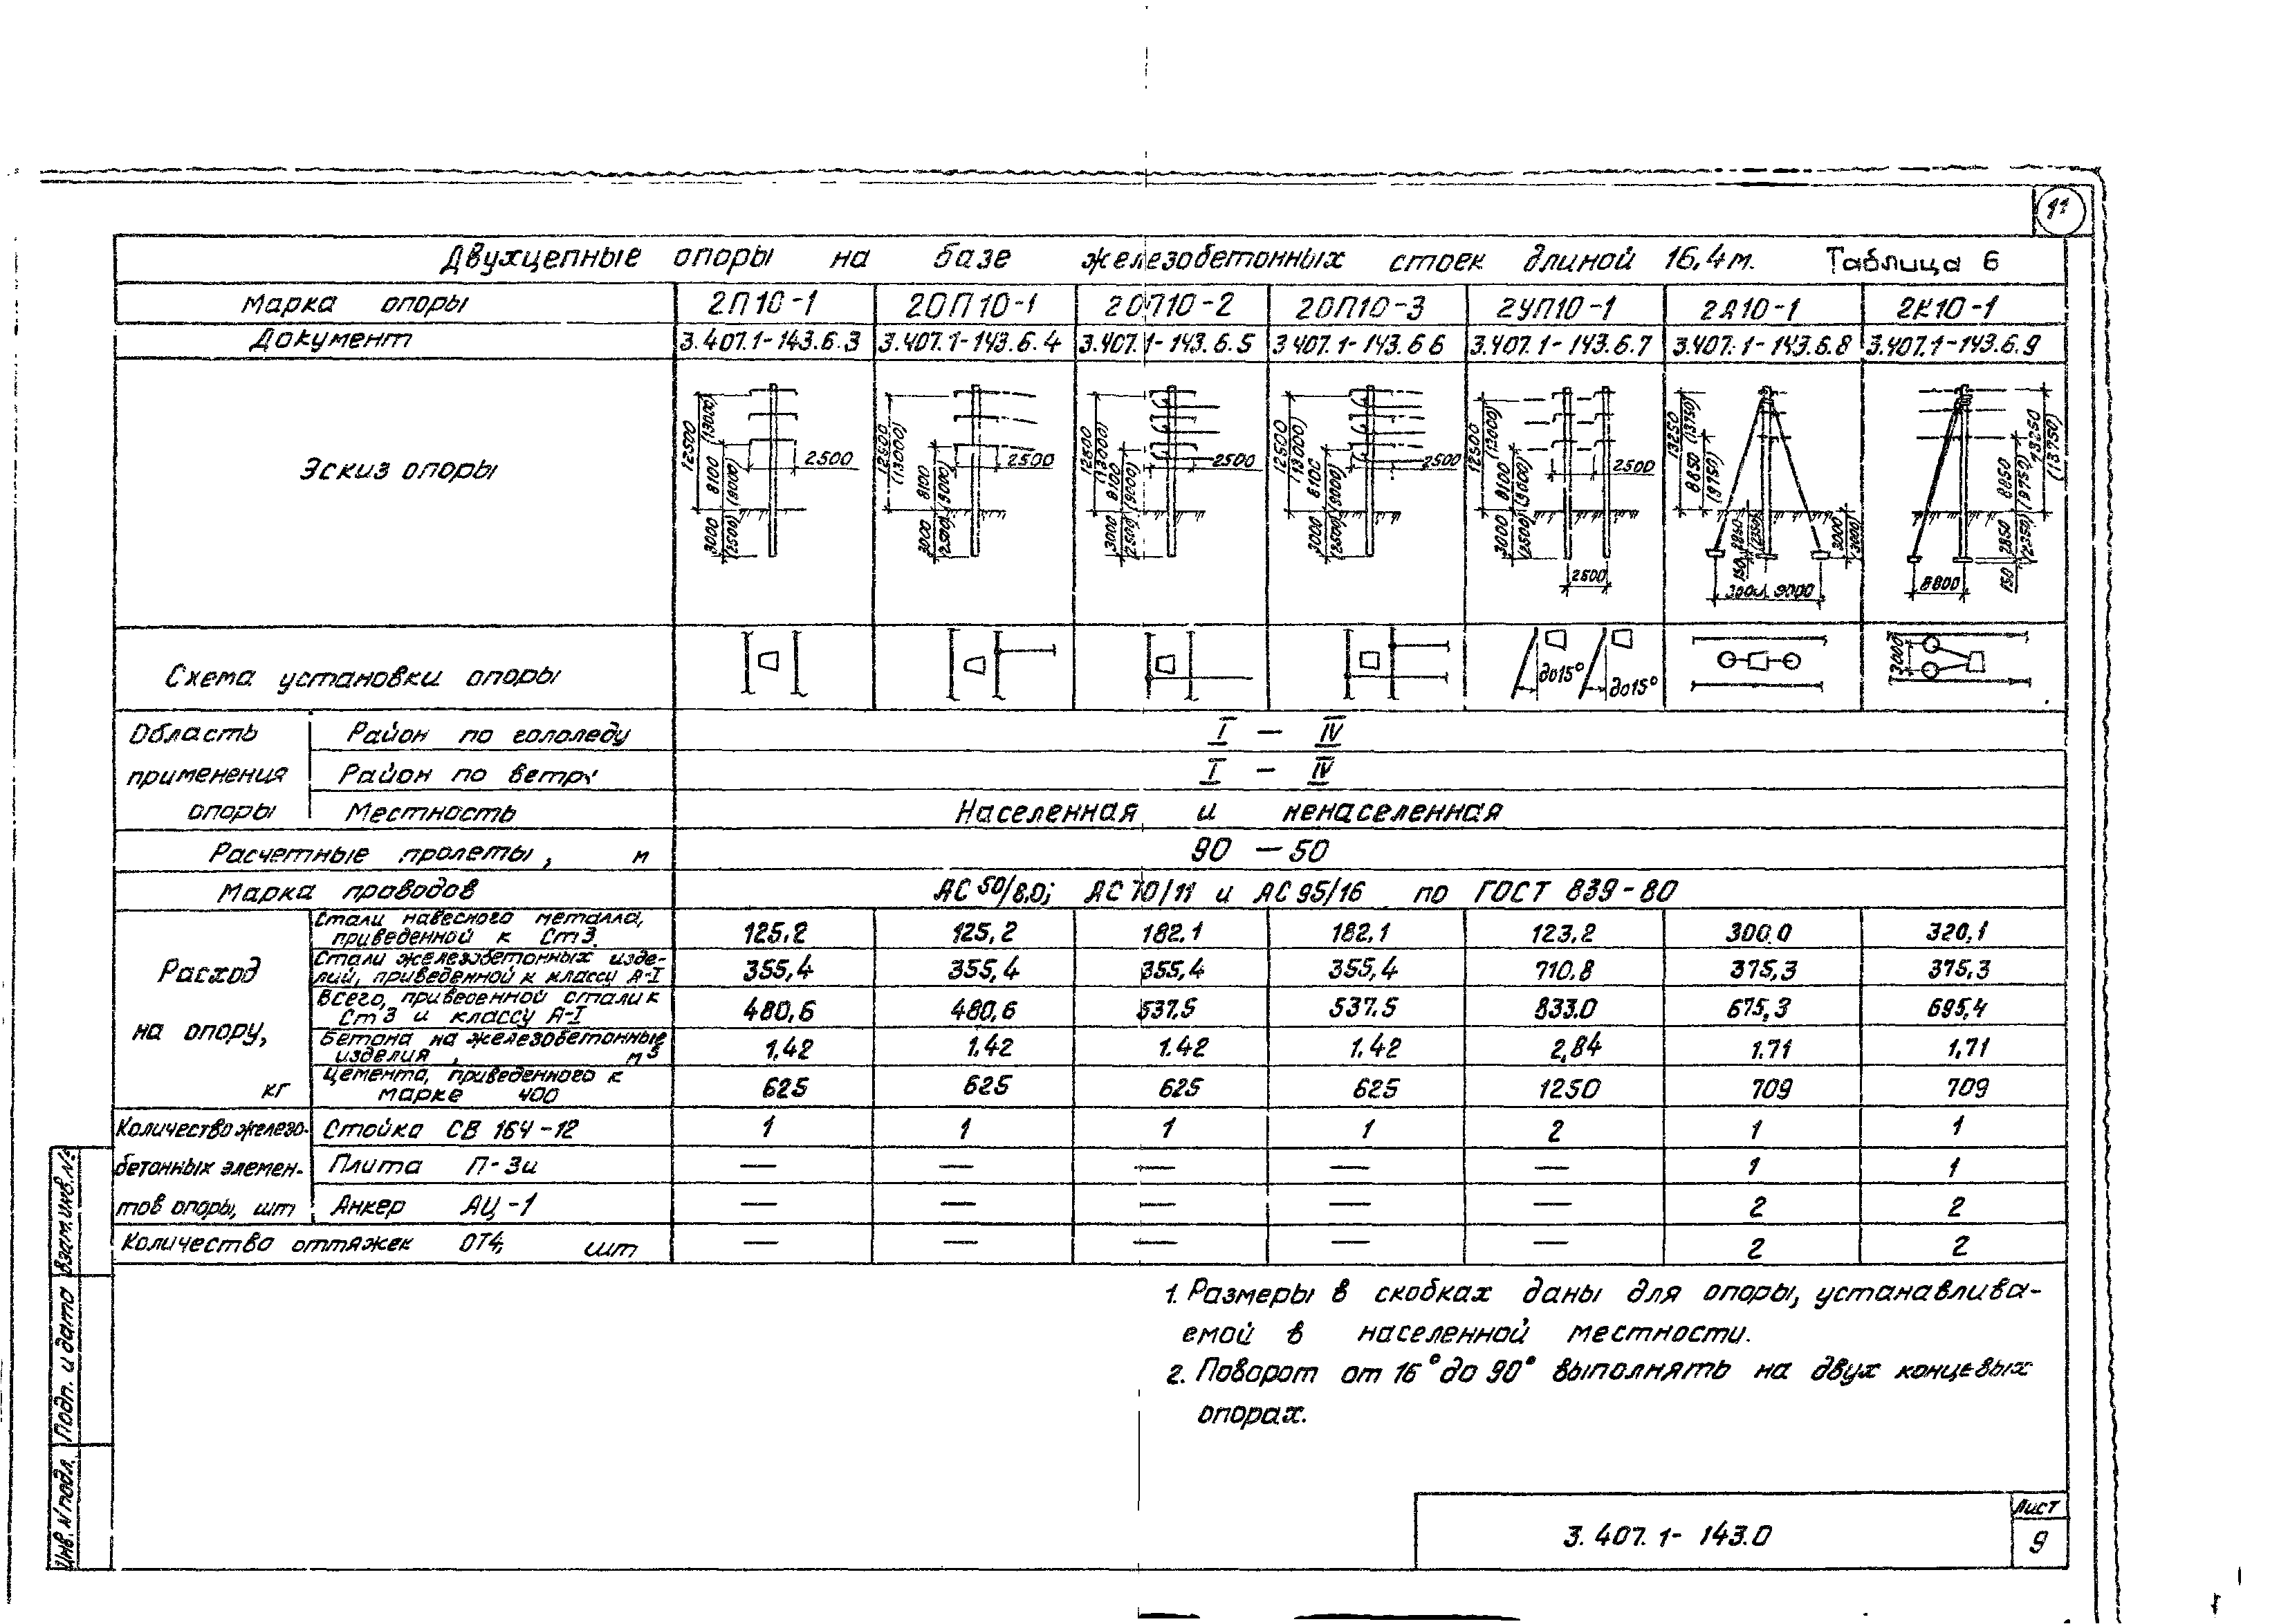 11
Двухцепные опоры на базе железобетонных стоек длиной 16,4м. Таблица 6
Марка опоры 2П10-1 2ОП10-1 2ОП10-2 2ОП10-3 2УП10-1 2А10-1 2К10-1
Документ 3.407.1-143.6.3 3.407.1-143.6.4 3.407.1-143.6.5 3 407.1-143.6 6 3.407.1-143.6.7 3.407.1-143.6.8 3.407.1-143.6.9
Эскиз опоры
12500 (13000) 8100 (9000) 3000 (2500) 2500
12500 (13000) 8100 (9000) 3000 (2500) 2500
12500 (13000) 8100 (9000) 3000 (2500) 2500
12500 (13000) 8100 (9000) 3000 (2500) 2500
12500 (13000) 8100 (9000) 3000 (2500) 2500 2500
13250 (13750) 8850 (9750) 2850 (2350) 150 3000 (3000) 9000
13250 (13750) 8850 (9750) 2850 (2350) 150 8800
Схема установки опоры до15° до15° 3000
Область Район по гололеду I - IV
применения Район по ветру I - IV
опоры Местность Населенная и ненаселенная
Расчетные пролеты, м 90 - 50
Марка проводов АС 50/8.0; АС 70/11 и АС 95/16 по ГОСТ 839-80
Стали навесного металла,
приведенной к Ст3. 125,2 125,2 182,1 182,1 123,2 300,0 320,1
Расход
Стали железобетонных изде-
лий, приведенной к классу А-I 355,4 355,4 355,4 355,4 710,8 375,3 375,3
Всего, приведенной стали к
Ст3 и классу А-I 480,6 480,6 537,5 537,5 833,0 675,3 695,4
на опору,
Бетона на железобетонные
изделия, м3 1.42 1.42 1.42 1.42 2,84 1.71 1,71
кг
Цемента, приведенного к
марке 400 625 625 625 625 1250 709 709
Количество железо- Стойка СВ 164-12 1 1 1 1 2 1 1
бетонных элемен- Плита П-3и — — — — — 1 1
тов опоры, шт Анкер АЦ-1 — — — — — 2 2
Количество оттяжек ОТ4, шт — — — — — 2 2
1. Размеры в скобках даны для опоры, устанавлива-
емой в населенной местности.
2. Поворот от 16° до 90° выполнять на двух концевых
опорах.
Взам.инв.№
Подп. и дата
Инв.№подл.
3.407.1-143.0
Лист
9